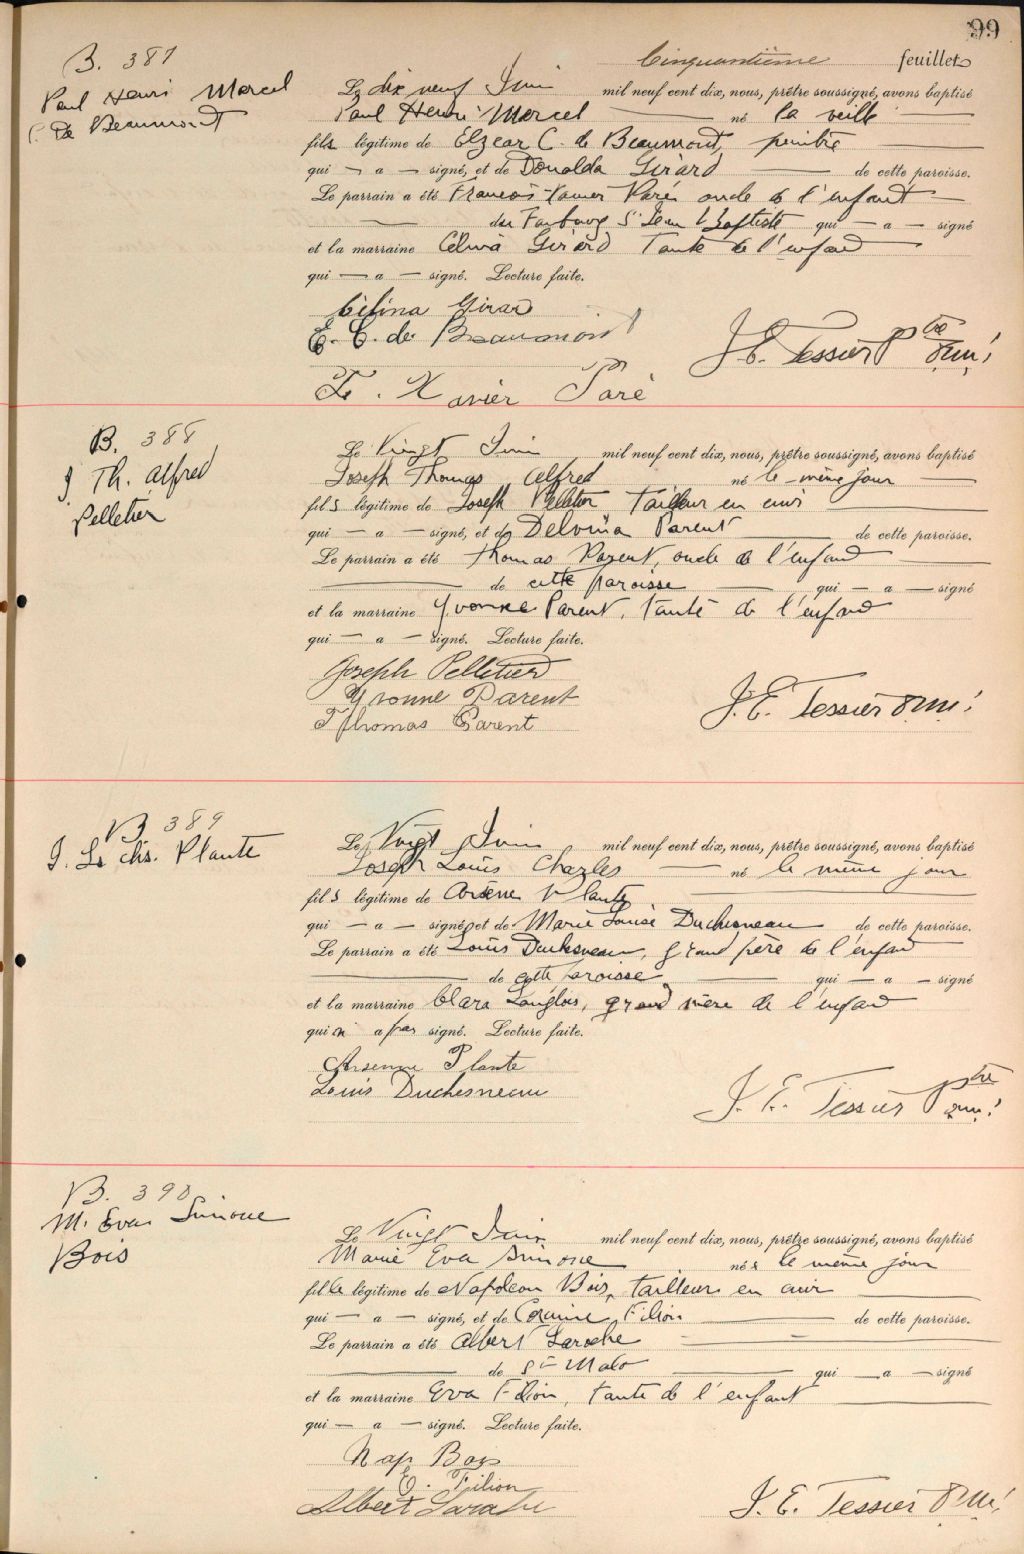 99
Cinquantième feuillet
B. 387
Paul Henri Marcel
C. de Beaumont
Le dix neuf Juin mil neuf cent dix, nous, prêtre soussigné, avons baptisé
Paul Henri Marcel né la veille
fils légitime de Elzear C. de Beaumont, peintre
qui — a — signé, et de Donalda Girard de cette paroisse.
Le parrain a été François-Xavier Paré oncle de l'enfant
du Faubourg St Jean Baptiste qui — a — signé
et la marraine Célina Girard Tante de l'enfant
qui — a — signé. Lecture faite.
Célina Girard
E. C. de Beaumont
J. E. Tessier Ptre
F. Xavier Paré
B. 388
J. Th. Alfred
Pelletier
Le Vingt Juin mil neuf cent dix, nous, prêtre soussigné, avons baptisé
Joseph Thomas Alfred né le même jour
fils légitime de Joseph Pelletier Tailleur en cuir
qui — a — signé, et de Delvina Parent de cette paroisse.
Le parrain a été Thomas Parent, oncle de l'enfant
de cette paroisse qui — a — signé
et la marraine Yvonne Parent, tante de l'enfant
qui — a — signé. Lecture faite.
Joseph Pelletier
Yvonne Parent
Thomas Parent
J. E. Tessier
B. 389
J. Ls Chs. Plante
Le Vingt Juin mil neuf cent dix, nous, prêtre soussigné, avons baptisé
Joseph Louis Charles né le même jour
fils légitime de Arsène Plante
qui — a — signé, et de Marie Louise Duchesneau de cette paroisse.
Le parrain a été Louis Duchesneau, grand père de l'enfant
de cette paroisse qui — a — signé
et la marraine Clara Langlois, grand mère de l'enfant
qui n' a pas signé. Lecture faite.
Arsenne Plante
Louis Duchesneau
J. E. Tessier Ptre
B. 390
M. Eva Simone
Bois
Le Vingt Juin mil neuf cent dix, nous, prêtre soussigné, avons baptisé
Marie Eva Simone née le même jour
fille légitime de Napoléon Bois, tailleur en cuir
qui — a — signé, et de Filion de cette paroisse.
Le parrain a été Albert Laroche
de St Malo qui — a — signé
et la marraine Eva Filion, tante de l'enfant
qui — a — signé. Lecture faite.
Nap Bois
E. Filion
Albert Laroche
J. E. Tessier